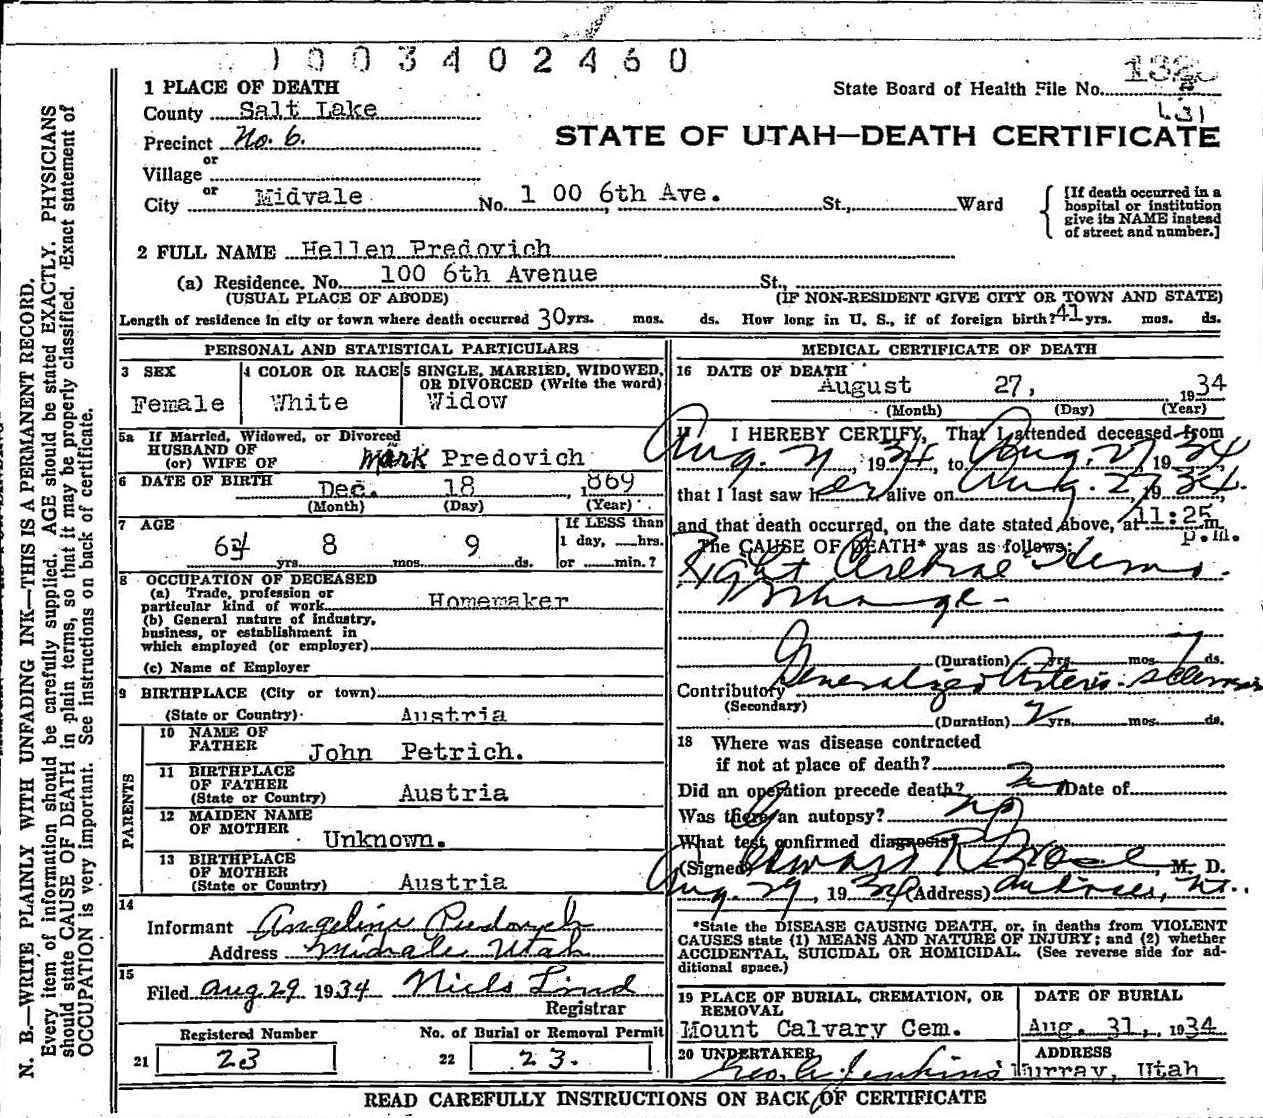 1003402460
State Board of Health File No.
631
STATE OF UTAH—DEATH CERTIFICATE
1 PLACE OF DEATH
County Salt Lake
Precinct No. 6.
or
Village
or
City Midvale No. 1 00 6th Ave. St., Ward
[If death occurred in a hospital or institution give its NAME instead of street and number.]
2 FULL NAME Hellen Predovich
(a) Residence. No. 100 6th Avenue St.,
(USUAL PLACE OF ABODE) (IF NON-RESIDENT GIVE CITY OR TOWN AND STATE)
Length of residence in city or town where death occurred 30 yrs. mos. ds. How long in U. S., if of foreign birth? 41 yrs. mos. ds.
PERSONAL AND STATISTICAL PARTICULARS
3 SEX
Female
4 COLOR OR RACE
White
5 SINGLE, MARRIED, WIDOWED, OR DIVORCED (Write the word)
Widow
5a If Married, Widowed, or Divorced
HUSBAND OF
(or) WIFE OF Mark Predovich
6 DATE OF BIRTH Dec. 18 , 1869
(Month) (Day) (Year)
7 AGE
64 yrs. 8 mos. 9 ds.
If LESS than
1 day, hrs.
or min.?
8 OCCUPATION OF DECEASED
(a) Trade, profession or
particular kind of work Homemaker
(b) General nature of industry,
business, or establishment in
which employed (or employer)
(c) Name of Employer
9 BIRTHPLACE (City or town)
(State or Country) Austria
PARENTS
10 NAME OF
FATHER John Petrich.
11 BIRTHPLACE
OF FATHER
(State or Country) Austria
12 MAIDEN NAME
OF MOTHER Unknown.
13 BIRTHPLACE
OF MOTHER
(State or Country) Austria
14
Informant Angeline Predovich
Address Midvale Utah
15
Filed Aug 29 1934 Niels Lind
Registrar
Registered Number
21 23
No. of Burial or Removal Permit
22 23.
MEDICAL CERTIFICATE OF DEATH
16 DATE OF DEATH
August 27, 1934
(Month) (Day) (Year)
17 I HEREBY CERTIFY, That I attended deceased from
Aug. 21, 1934, to Aug. 27, 1934
that I last saw her alive on Aug. 27, 1934.
and that death occurred, on the date stated above, at 11:25 m.
p.m.
The CAUSE OF DEATH* was as follows:
Right Cerebral Hemo-
rrhage -
(Duration) yrs. mos. 7 ds.
Contributory Generalized Arterio-sclerosis
(Secondary)
(Duration) 2 yrs. mos. ds.
18 Where was disease contracted
if not at place of death?
Did an operation precede death? no Date of
Was there an autopsy? no
What test confirmed diagnosis?
(Signed) , M. D.
Aug. 29, 1934 (Address)
*State the DISEASE CAUSING DEATH, or, in deaths from VIOLENT
CAUSES state (1) MEANS AND NATURE OF INJURY; and (2) whether
ACCIDENTAL, SUICIDAL OR HOMICIDAL. (See reverse side for ad-
ditional space.)
19 PLACE OF BURIAL, CREMATION, OR
REMOVAL
Mount Calvary Cem.
DATE OF BURIAL
Aug. 31, 1934
20 UNDERTAKER
Geo. A Jenkins
ADDRESS
Murray, Utah
READ CAREFULLY INSTRUCTIONS ON BACK OF CERTIFICATE
N. B.—WRITE PLAINLY WITH UNFADING INK—THIS IS A PERMANENT RECORD.
Every item of information should be carefully supplied. AGE should be stated EXACTLY. PHYSICIANS
should state CAUSE OF DEATH in plain terms, so that it may be properly classified. Exact statement of
OCCUPATION is very important. See instructions on back of certificate.